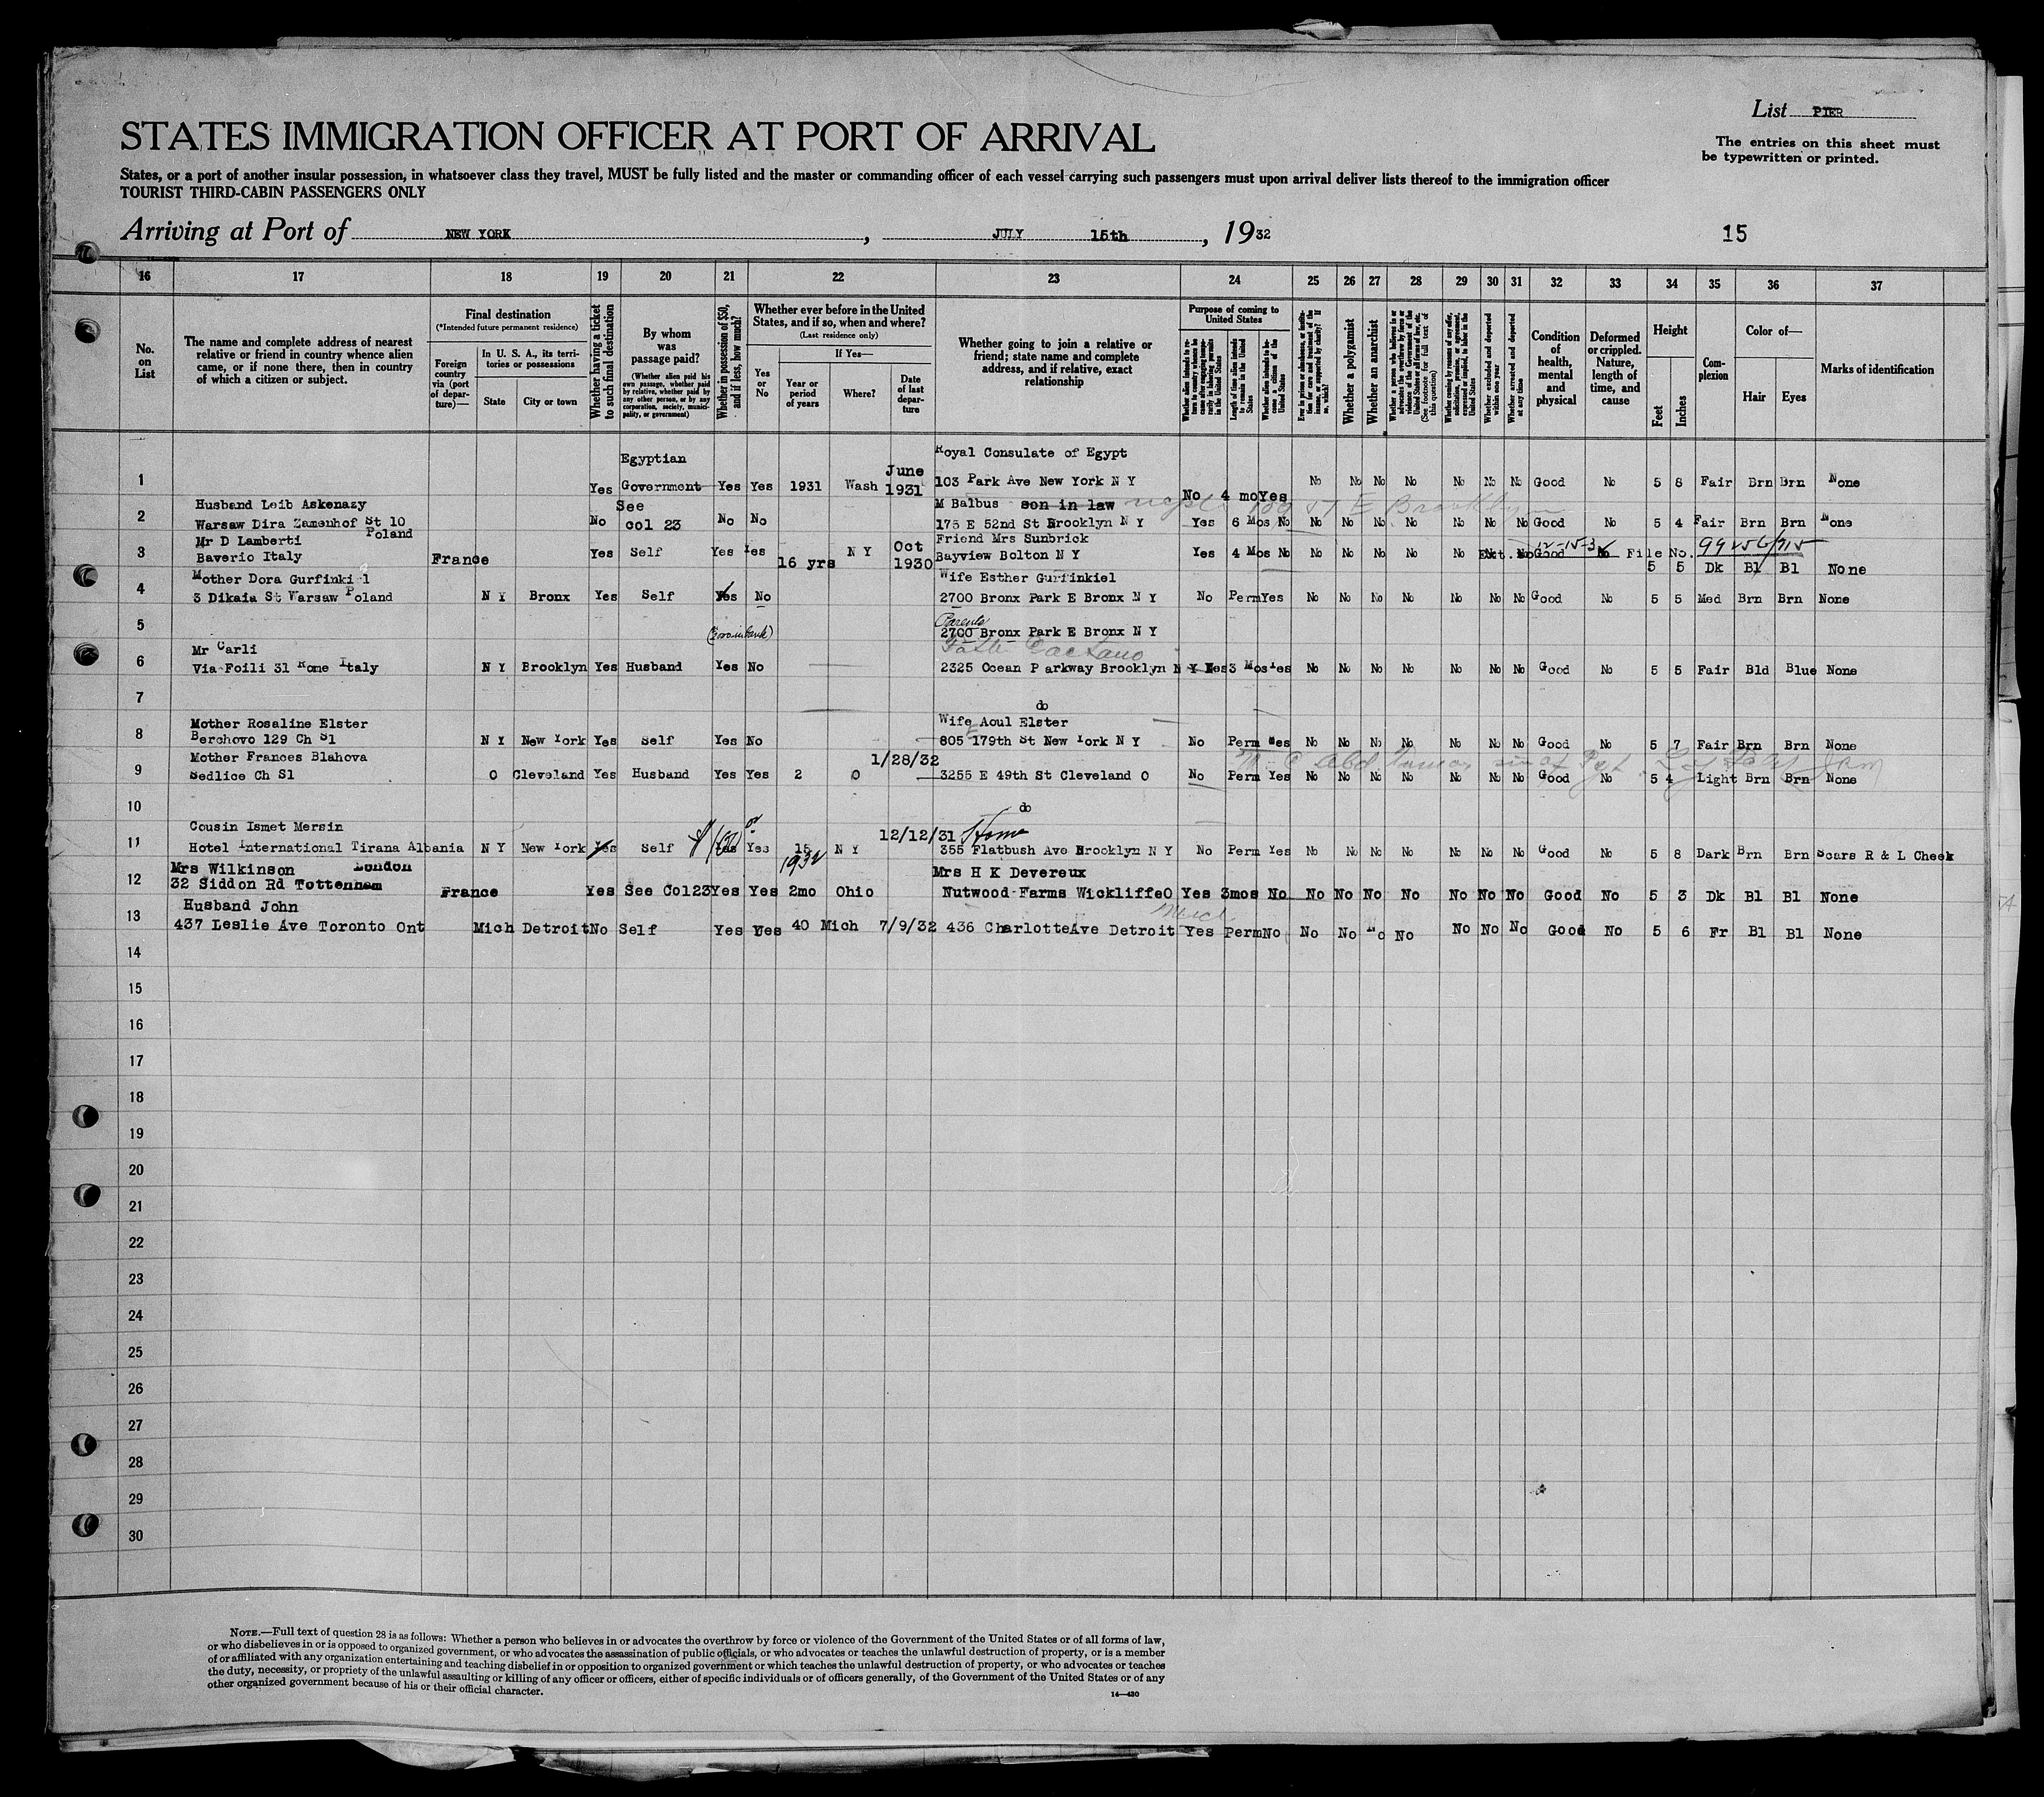 List PIER
STATES IMMIGRATION OFFICER AT PORT OF ARRIVAL
The entries on this sheet must
be typewritten or printed.
States, or a port of another insular possession, in whatsoever class they travel, MUST be fully listed and the master or commanding officer of each vessel carrying such passengers must upon arrival deliver lists thereof to the immigration officer
TOURIST THIRD-CABIN PASSENGERS ONLY
Arriving at Port of NEW YORK, JULY 15th, 1932 15
16 17 18 19 20 21 22 23 24 25 26 27 28 29 30 31 32 33 34 35 36 37
No. on List
The name and complete address of nearest relative or friend in country whence alien came, or if none there, then in country of which a citizen or subject.
Final destination
(*Intended future permanent residence)
Foreign country via (port of departure)—
In U. S. A., its territories or possessions
State
City or town
Whether having a ticket to such final destination
By whom was passage paid?
(Whether alien paid his own passage, whether paid by relative, whether paid by any other person, or by any corporation, society, municipality, or government)
Whether in possession of $50, and if less, how much?
Whether ever before in the United States, and if so, when and where?
(Last residence only)
Yes or No
If Yes—
Year or period of years
Where?
Date of last departure
Whether going to join a relative or friend; state name and complete address, and if relative, exact relationship
Purpose of coming to United States
Whether alien intends to return to country whence he came after engaging temporarily in laboring pursuits in the United States
Length of time alien intends to remain in the United States
Whether alien intends to become a citizen of the United States
Ever in prison or almshouse, or institution for care and treatment of the insane, or supported by charity? If so, which?
Whether a polygamist
Whether an anarchist
Whether a person who believes in or advocates the overthrow by force or violence of the Government of the United States or all forms of law, etc. (See footnote for full text of this question)
Whether coming by reasons of any offer, solicitation, promise, or agreement, expressed or implied, to labor in the United States
Whether excluded and deported within one year
Whether arrested and deported at any time
Condition of health, mental and physical
Deformed or crippled. Nature, length of time, and cause
Height
Feet
Inches
Complexion
Color of—
Hair
Eyes
Marks of identification
Egyptian Royal Consulate of Egypt
1 Yes Government Yes Yes 1931 Wash June 1931 103 Park Ave New York N Y No 4 mo Yes No No No No No No No Good No 5 8 Fair Brn Brn None
Husband Leib Askenazy See M Balbus son in law
2 Warsaw Dira Zamenhof St 10 Poland No col 23 No No 175 E 52nd St Brooklyn N Y Yes 6 Mos No No No No No No No No Good No 5 4 Fair Brn Brn None
Mr D Lamberti Friend Mrs Sunbrick
3 Baverio Italy France Yes Self Yes Yes 16 yrs N Y Oct 1930 Bayview Bolton N Y Yes 4 Mos No No No No No No Ext. No Good No File No.
5 5 Dk Bl Bl None
Mother Dora Gurfinkiel Wife Esther Gurfinkiel
4 3 Dikaia St Warsaw Poland N Y Bronx Yes Self Yes No 2700 Bronx Park E Bronx N Y No Perm Yes No No No No No No No Good No 5 5 Med Brn Brn None
Parents
5 2700 Bronx Park E Bronx N Y
Mr Carli
6 Via Foili 31 Rome Italy N Y Brooklyn Yes Husband Yes No 2325 Ocean Parkway Brooklyn N Y Yes 3 Mos Yes No No No No No No No Good No 5 5 Fair Bld Blue None
7 do
Mother Rosaline Elster Wife Aoul Elster
8 Berchovo 129 Ch Sl N Y New York Yes Self Yes No 805 E 179th St New York N Y No Perm Yes No No No No No No No Good No 5 7 Fair Brn Brn None
Mother Frances Blahova
9 Sedlice Ch Sl O Cleveland Yes Husband Yes Yes 2 O 1/28/32 3255 E 49th St Cleveland O No Perm Yes No No No No No No No Good No 5 4 Light Brn Brn None
10 do
Cousin Ismet Mersin Home
11 Hotel International Tirana Albania N Y New York Yes Self Yes Yes 15 N Y 12/12/31 355 Flatbush Ave Brooklyn N Y No Perm Yes No No No No No No No Good No 5 8 Dark Brn Brn Scars R & L Cheek
Mrs Wilkinson London 1932 Mrs H K Devereux
12 32 Siddon Rd Tottenham France Yes See Col23 Yes Yes 2mo Ohio Nutwood Farms Wickliffe O Yes 3mos No No No No No No No No Good No 5 3 Dk Bl Bl None
Husband John Mich
13 437 Leslie Ave Toronto Ont Mich Detroit No Self Yes Yes 40 Mich 7/9/32 436 Charlotte Ave Detroit Yes Perm No No No No No No No No Good No 5 6 Fr Bl Bl None
14
15
16
17
18
19
20
21
22
23
24
25
26
27
28
29
30
NOTE.—Full text of question 28 is as follows: Whether a person who believes in or advocates the overthrow by force or violence of the Government of the United States or of all forms of law,
or who disbelieves in or is opposed to organized government, or who advocates the assassination of public officials, or who advocates or teaches the unlawful destruction of property, or is a member
of or affiliated with any organization entertaining and teaching disbelief in or opposition to organized government or which teaches the unlawful destruction of property, or who advocates or teaches
the duty, necessity, or propriety of the unlawful assaulting or killing of any officer or officers, either of specific individuals or of officers generally, of the Government of the United States or of any
other organized government because of his or their official character.
14—430